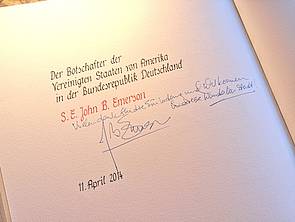 Der Botschafter der
Vereinigten Staaten von Amerika
in der Bundesrepublik Deutschland
S.E. John B. Emerson
Vielen Dank für die Einladung und Willkommen
Stadt
11. April 2014